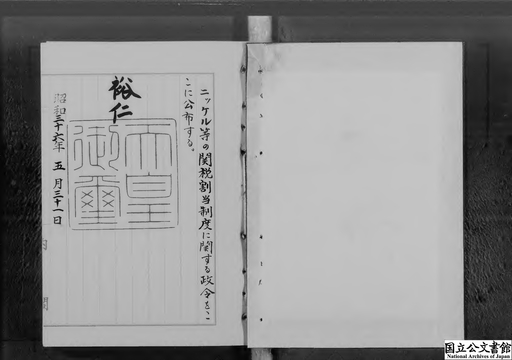 ニッケル等の関税割当制度に関する政令をこ
こに公布する。
裕仁
天皇御璽
昭和三十六年五月三十一日
内閣
国立公文書館
National Archives of Japan